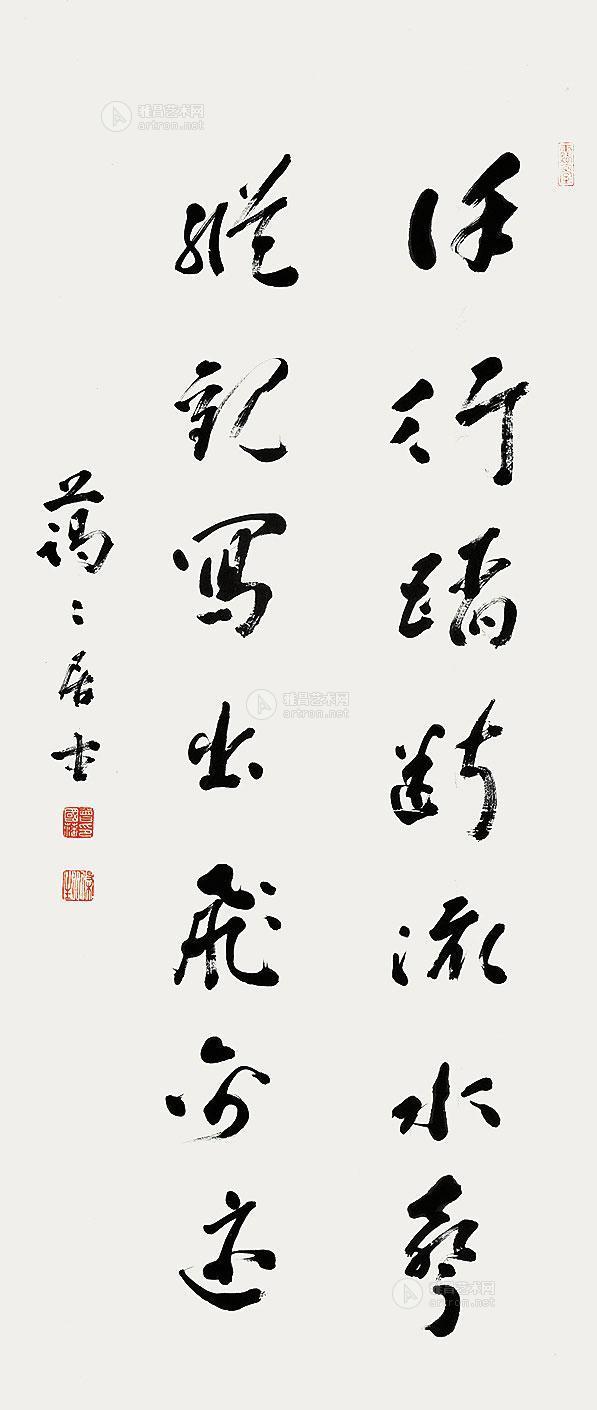 徐行踏斷流水聲
縱觀寫出飛禽迹
藹々居士
雅昌艺术网
artron.net
雅昌艺术网
artron.net
雅昌艺术网
artron.net